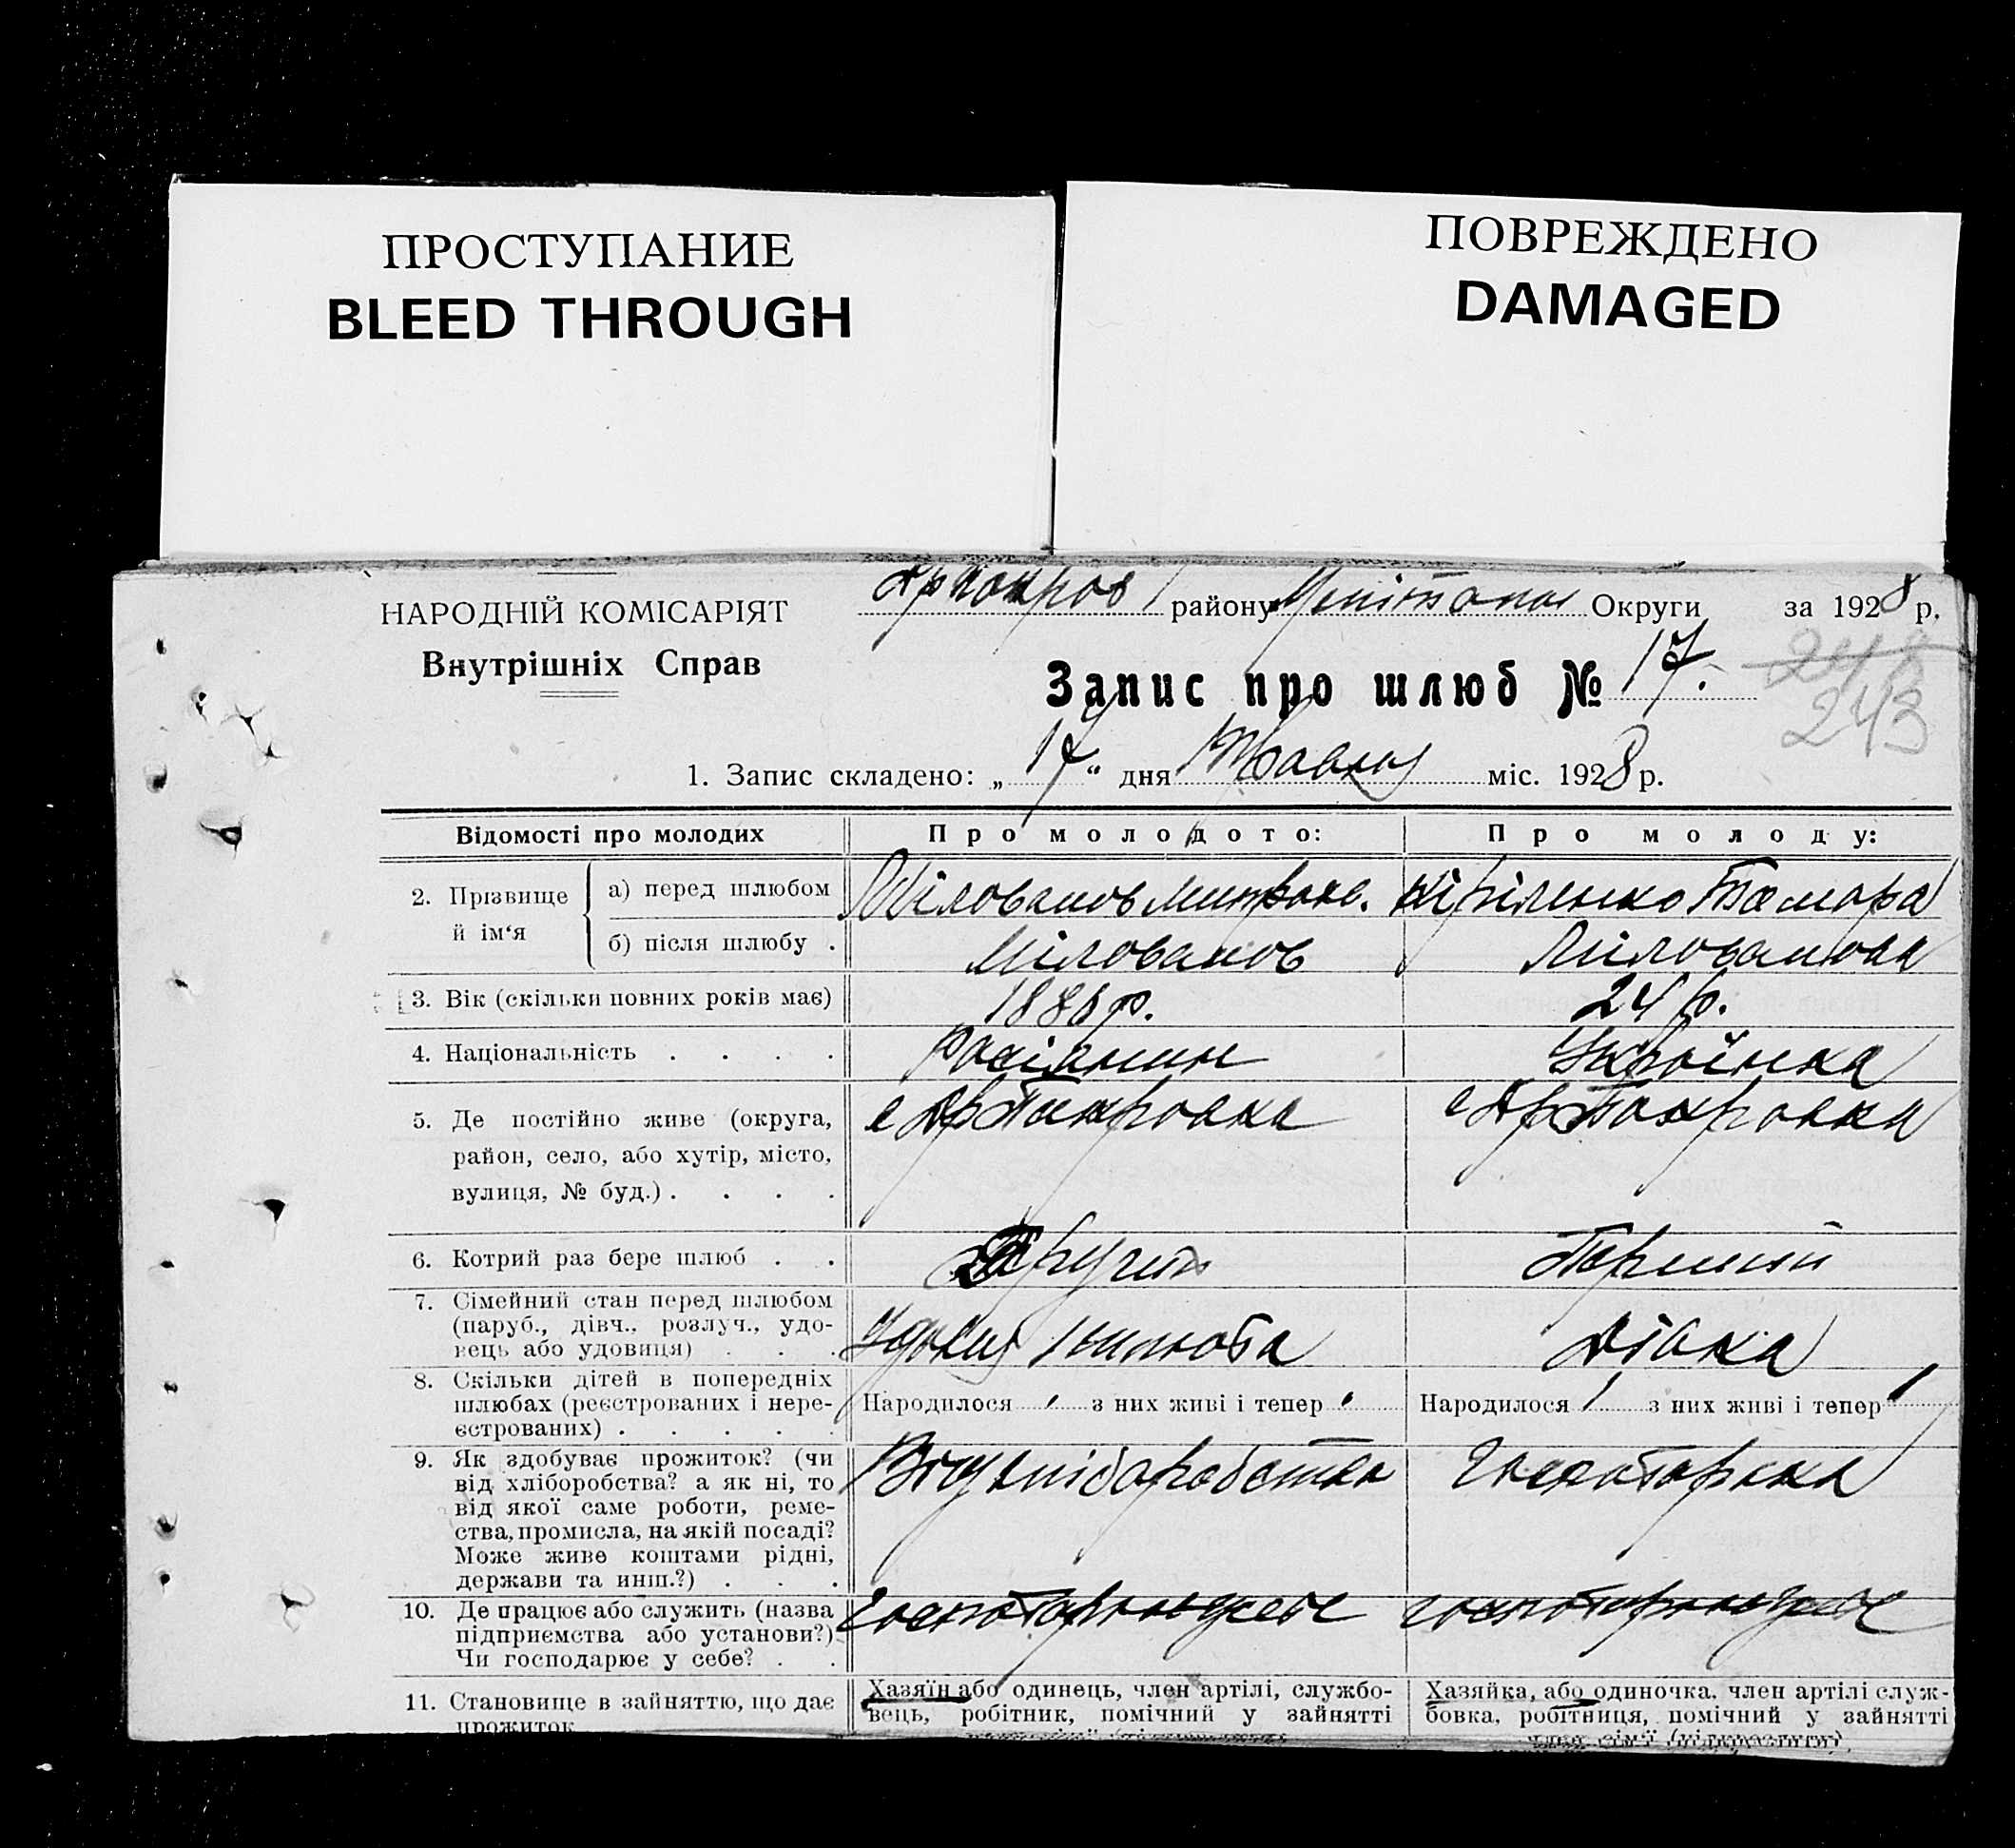 ПРОСТУПАНИЕ
BLEED THROUGH
ПОВРЕЖДЕНО
DAMAGED
НАРОДНІЙ КОМІСАРІЯТ
Внутрішніх Справ
району Округи за 1928 р.
Запис про шлюб № 17.
248
243
1. Запис складено: „17“ дня Травня міс. 1928 р.
Відомості про молодих
Про молодого:
Про молоду:
2. Прізвище й ім‘я
а) перед шлюбом
Мілованов Митроф.
Кіріленко Тамара
б) після шлюбу .
Мілованов
Мілованова
3. Вік (скільки повних років має)
р.
24 р.
4. Національність . . . .
Росіянин
Українка
5. Де постійно живе (округа,
район, село, або хутір, місто,
вулиця, № буд.) . . . .
6. Котрий раз бере шлюб . .
Другий
Перший
7. Сімейний стан перед шлюбом
(паруб., дівч., розлуч., удо-
вець або удовиця) . . .
Дівка
8. Скільки дітей в попередніх
шлюбах (реєстрованих і нере-
єстрованих) . . . . .
Народилося з них живі і тепер
Народилося з них живі і тепер
9. Як здобуває прожиток? (чи
від хліборобства? а як ні, то
від якої саме роботи, реме-
ства, промисла, на якій посаді?
Може живе коштами рідні,
держави та инш.?) . . .
10. Де працює або служить (назва
підприємства або установи?)
Чи господарює у себе? . .
11. Становище в зайняттю, що дає
прожиток
Хазяїн або одинець, член артілі, службо-
вець, робітник, помічний у зайнятті
Хазяйка, або одиночка, член артілі служ-
бовка, робітниця, помічний у зайнятті